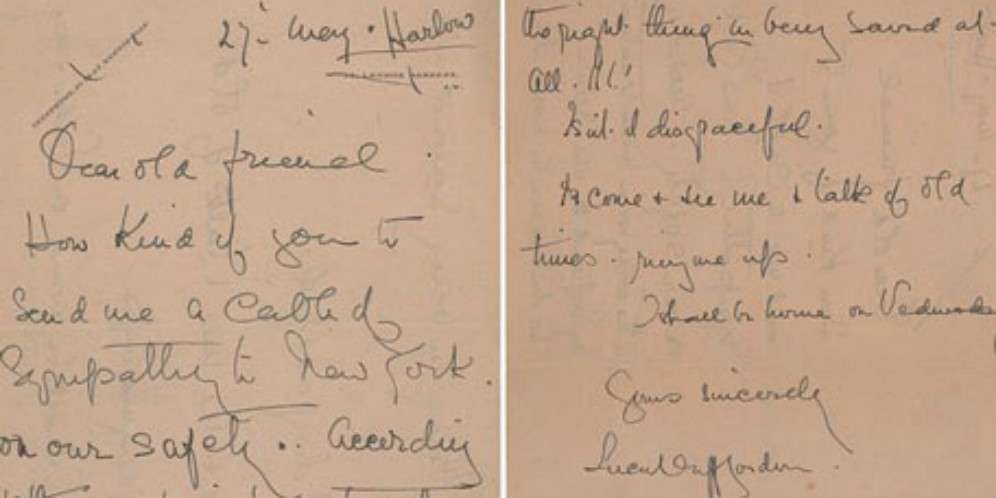 27- May. Harlow
Dear old friend.
How kind of you to
send me a cable of
sympathy to New York.
on our safety.. According
the right thing in being saved at
all. !!!
Isn't it disgraceful.
Do come & see me & talk of old
times. ring me up.
I shall be home on Wednesday
Yours sincerely
Lucy Duff Gordon.